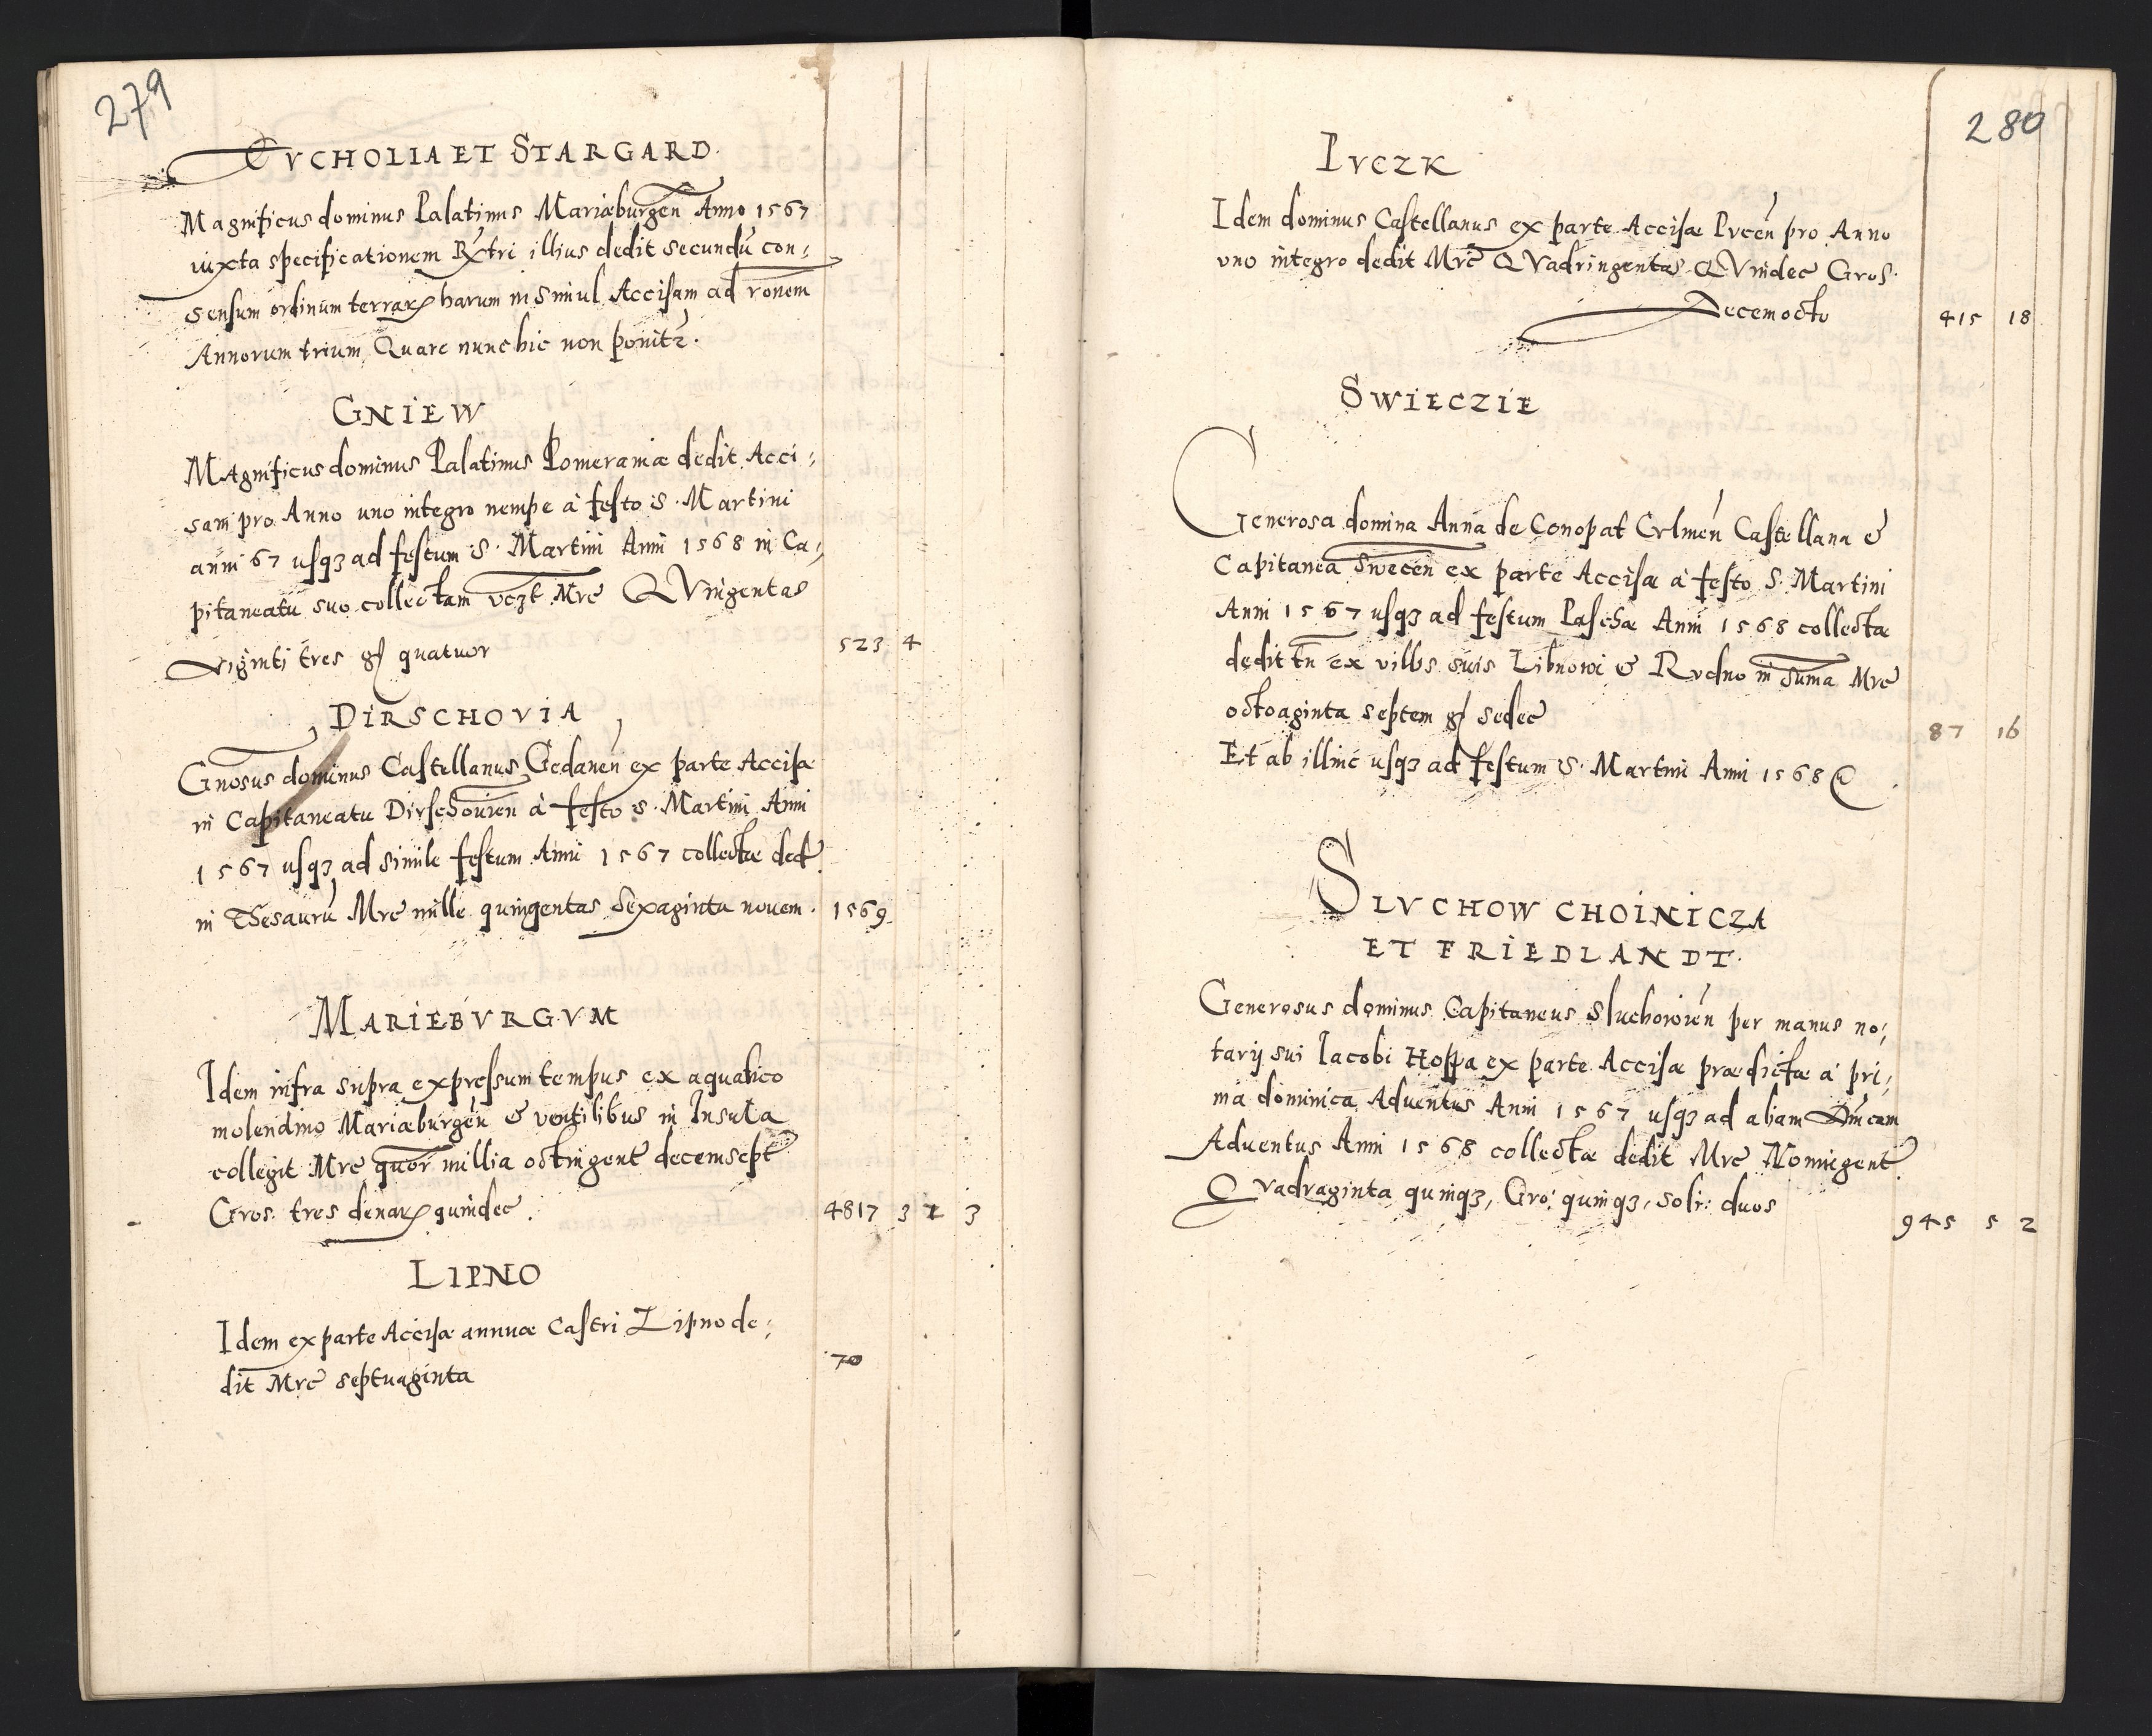 279
TVCHOLIA ET STARGARD.
Magnificus dominus Palatinus Mariæburgen̄ Anno 1567
iuxta specificationem Rx̄tri illius dedit secundū con:
sensum ordinum terraꝝ harum in simul Accisam ad ronem
Annorum trium Quare nunc hic non ponitz.
GNIEW
Magnificus dominus Palatinus Pomeraniæ dedit Acci:
sam pro Anno uno integro nempe à festo S. Martini
anni 67 usqȝ ad festum S. Martini Anni 1568 in Ca:
pitaneatu suo collectam vczt Mrc QVingentas
viginti tres gʃ quatuor 523 4
DIRSCHOVIA
Gnosus dominus Castellanus Gedanen̄ ex parte Accisæ
in Capitaneatu Dirschouien à festo S. Martini Anni
1567 usqȝ ad simile festum Anni 1567 collectæ ded̄
in Thesaurū Mrc mille quingentas Sexaginta nouem. 1569
MARIEBVRGVM
Idem infra supra expressum tempus ex aquatico
molendino Mariæburgen̄ & ventilibus in Insula
collegit Mrc quor millia octingent decemsept
Gros. tres denaꝝ quindec. 4817 3 2 3
LIPNO
Idem ex parte Accisæ annuæ Castri Lipno de:
dit Mrc septuaginta 70
280
PVCZK
Idem dominus Castellanus ex parte Accisæ Pvcen̄ pro Anno
vno integro dedit Mrc QVadringentas QVindec Gros.
Decemocto 415 18
SWIECZIE
Generosa domina Anna de Conopat Cvlmen̄ Castellana &
Capitanea Swecen ex parte Accisæ à festo S. Martini
Anni 1567 usqȝ ad festum Paschæ Anni 1568 collectæ
dedit tn ex villis suis Libnowi & Rvdno in suma Mrc
octoaginta septem gʃ sedec 87 16
Et ab illinc usqȝ ad festum S. Martini Anni 1568
SLVCHOW CHOINICZA
ET FRIEDLANDT.
Generosus dominus Capitaneus Sluchowien̄ per manus no:
tarij sui Iacobi Hoppa ex parte Accisæ prædictæ à pri:
ma dominica Aduentus Anni 1567 usqȝ ad aliam Dn̄icam
Aduentus Anni 1568 collectæ dedit Mrc Noningent
Qvadraginta quinqȝ, Gro: quinqȝ, soli: duos 945 5 2